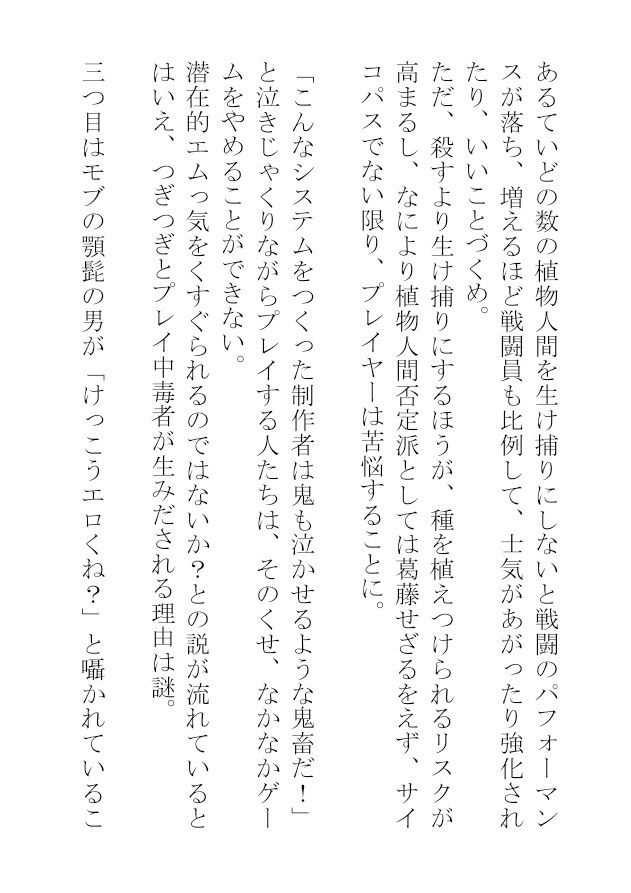 あるていどの数の植物人間を生け捕りにしないと戦闘のパフォーマン
スが落ち、増えるほど戦闘員も比例して、士気があがったり強化され
たり、いいことづくめ。
ただ、殺すより生け捕りにするほうが、種を植えつけられるリスクが
高まるし、なにより植物人間否定派としては葛藤せざるをえず、サイ
コパスでない限り、プレイヤーは苦悩することに。
「こんなシステムをつくった制作者は鬼も泣かせるような鬼畜だ！」
と泣きじゃくりながらプレイする人たちは、そのくせ、なかなかゲー
ムをやめることができない。
潜在的エムっ気をくすぐられるのではないか？との説が流れていると
はいえ、つぎつぎとプレイ中毒者が生みだされる理由は謎。
三つ目はモブの顎髭の男が「けっこうエロくね？」と囁かれているこ